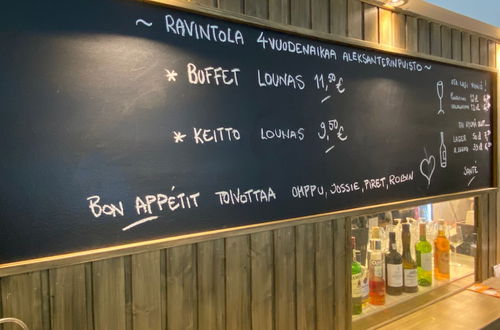 ~ RAVINTOLA 4 VUODENAIKAA ALEKSANTERINPUISTO ~
* BUFFET LOUNAS 11,50 €
* KEITTO LOUNAS 9,50 €
BON APPÉTIT TOIVOTTAA OMPPU, JOSSIE, PIRET, ROBIN
OTA LASI VIINIÄ!
TAI KYLMÄ OLUT
LAGER
SANTÉ